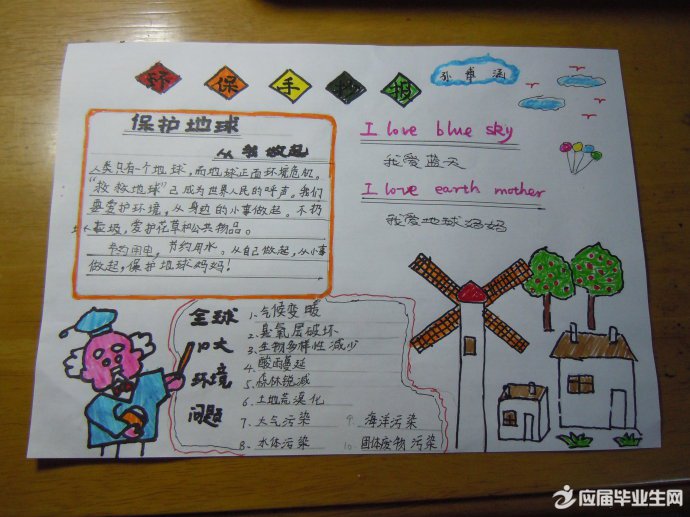 环保手抄报
孙卓涵
保护地球
从我做起
人类只有一个地球,而地球正面环境危机。
"救救地球"已成为世界人民的呼声。我们
要爱护环境,从身边的小事做起。不扔
垃圾,爱护花草和公共物品。
节约用电,节约用水。从自己做起,从小事
做起,保护地球妈妈!
I love blue sky
我爱蓝天
I love earth mother
我爱地球妈妈
全球
十大
环境
问题
1.气候变暖
2.臭氧层破坏
3.生物多样性减少
4.酸雨蔓延
5.森林锐减
6.土地荒漠化
7.大气污染
8.水体污染
9.海洋污染
10.固体废物污染
应届毕业生网